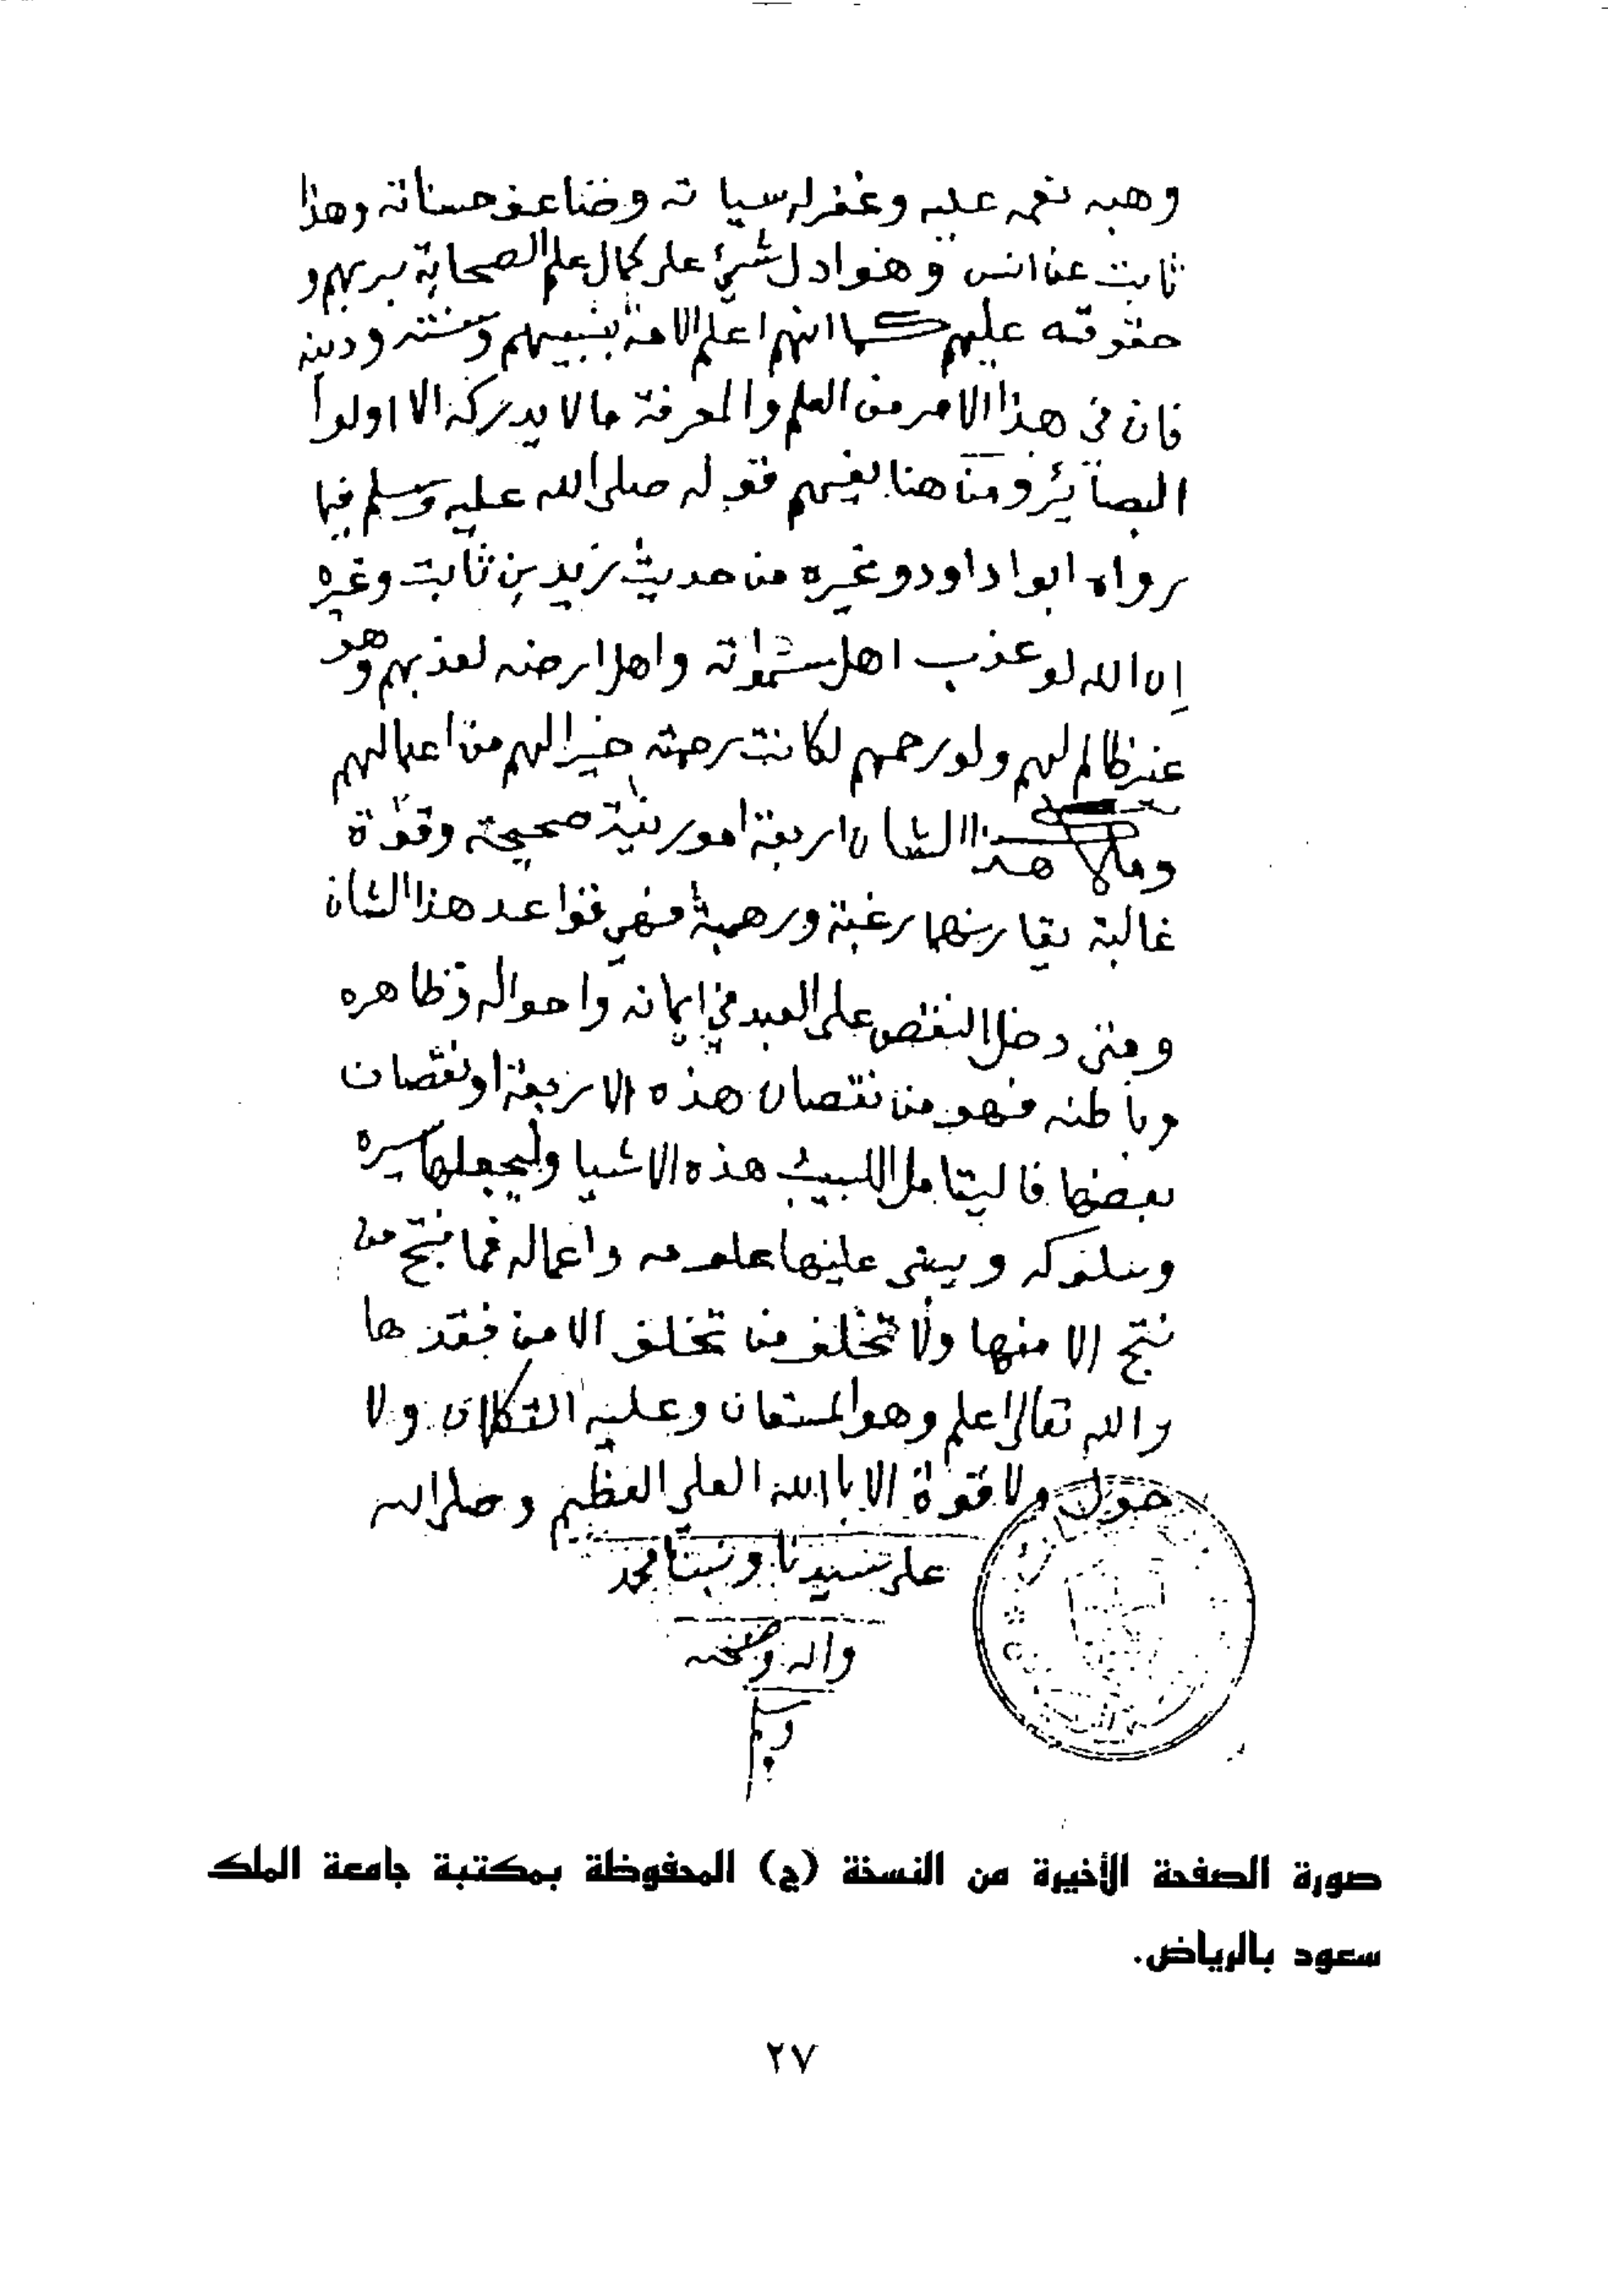 وهبه نعمه عليه وغفرله سياته وضاعف حسناته وهذا
ثابت عن انس وهو ادل شيء على كمال علم الصحابة بربهم و
حقوقه عليهم كما انهم اعلم الامة بنبيهم وسنته ودينه
فان في هذا الامر من العلم والمعرفة ما لا يدركه الا اولوا
البصائر ومن هنا يفهم قوله صلى الله عليه وسلم فيما
رواه ابوا داود وغيره من حديث زيد بن ثابت وغيره
ان الله لو عذب اهل سمواته واهل ارضه لعذبهم وهو
غير ظالم لهم ولو رحمهم لكانت رحمته خيرا لهم من اعمالهم
وملاك هذا الشان اربعة امور نية صحيحة وقوة
غالبة يقارنهما رغبة ورهبة فهي قواعد هذا الشان
ومتى دخل النقص على العبد في ايمانه واحواله وظاهره
وباطنه فهو من نقصان هذه الاربعة او نقصان
بعضها فاليتامل اللبيب هذه الاشيا وليجعلها سيره
وسلوكه ويبنى عليها علومه واعماله فما نتج من
نتج الا منها ولا تخلف من تخلف الا من فقدها
والله تعالى اعلم وهو المستعان وعليه التكلان ولا
حول ولا قوة الا باالله العلي العظيم وصلى الله
على سيدنا ونبينا محمد
واله وصحبه
وسلم
صورة الصفحة الأخيرة من النسخة (ج) المحفوظة بمكتبة جامعة الملك
سعود بالرياض.
٢٧